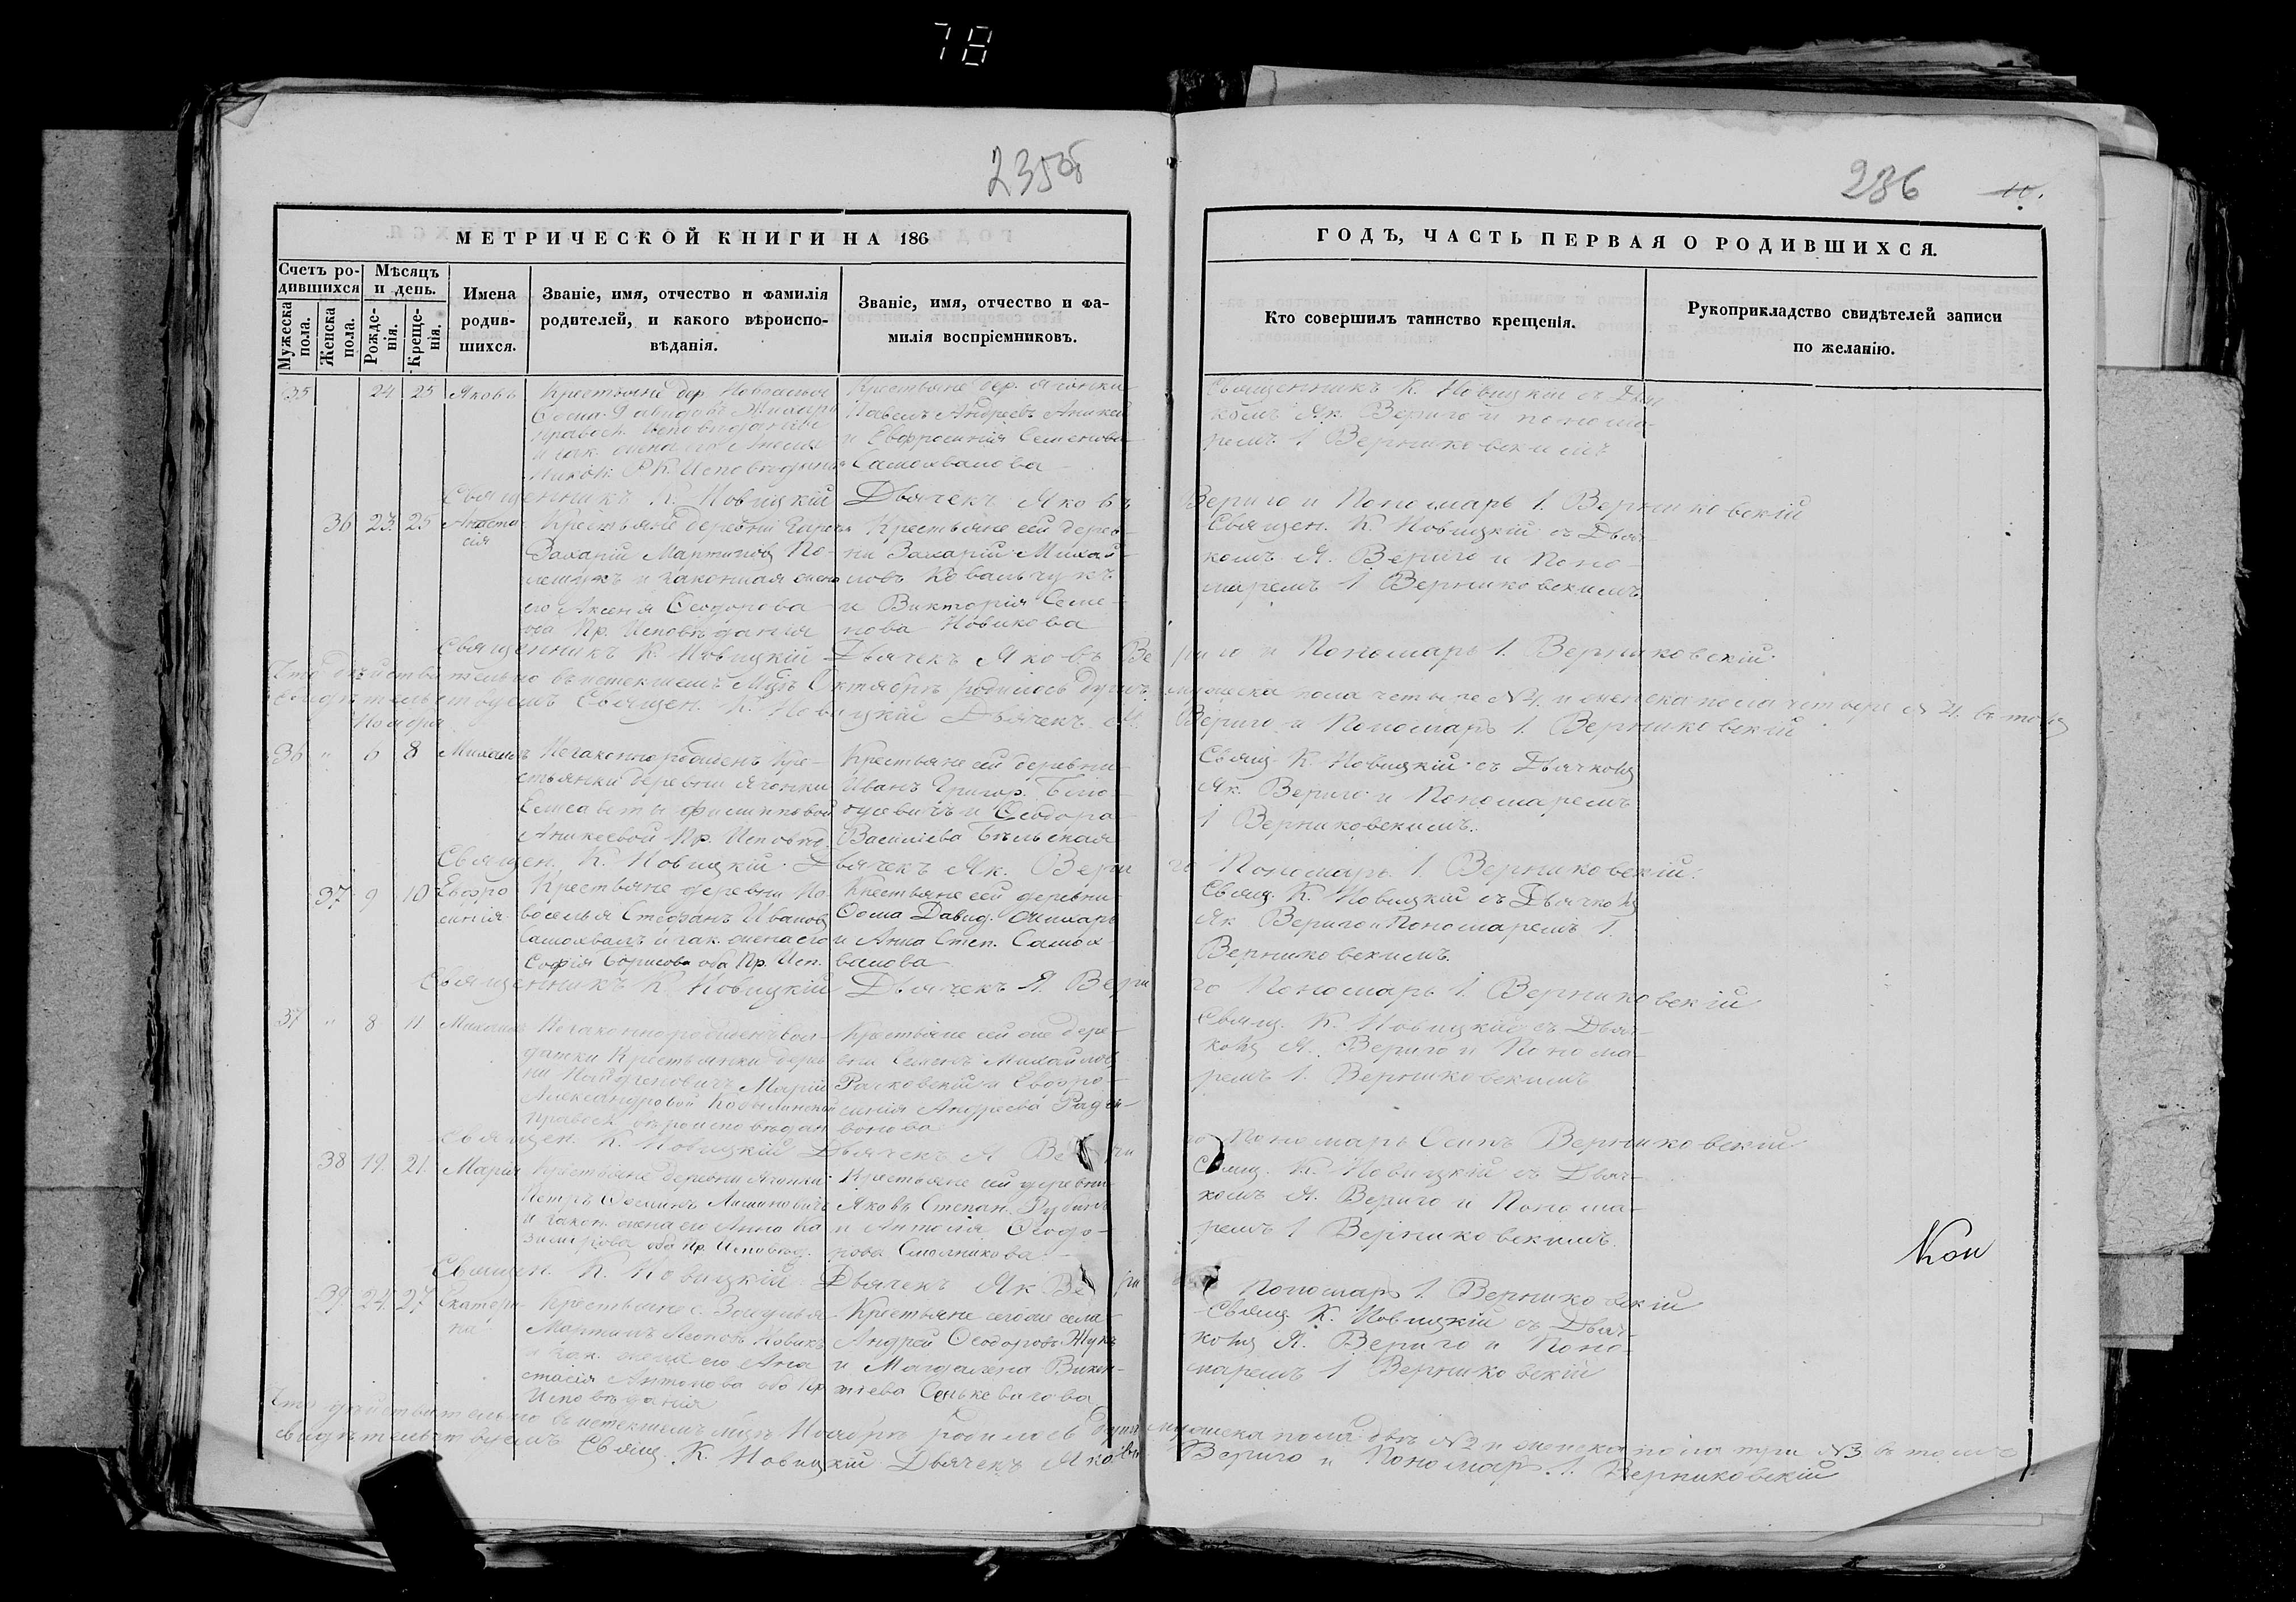 78
235об
236
10.
МЕТРИЧЕСКОЙ КНИГИ НА 186
ГОДЪ, ЧАСТЬ ПЕРВАЯ О РОДИВШИХСЯ.
Счетъ ро-
дившихся
Мѣсяцъ
и день.
Мужеска
пола.
Женска
пола.
Рожде-
нія.
Креще-
нія.
Имена
родив-
шихся.
Званіе, имя, отчество и фамилія
родителей, и какого вѣроиспо-
вѣданія.
Званіе, имя, отчество и фа-
милія воспріемниковъ.
Кто совершилъ таинство крещенія.
Рукоприкладство свидѣтелей записи
по желанію.
35 24 25 Яковъ
Крестьяне дер.
Ѳома Давидовъ
Правосл. Исповѣданія
и зак. жена его
Р. К. Исповѣданія
Крестьяне дер. Ягонки
Павелъ Андреевъ Аникей
и Евфросинія Семенова
Самохвалова
Священникъ К. Новицкій съ Дья
комъ Як. Вериго и понома-
ремъ І Верниковскимъ
Священникъ К. Новицкій Дьячекъ Яковъ Вериго и Пономарь І. Верниковскій
36 23 25 Анаста
сія
Крестьяне деревни
Захарій Мартиновъ По-
лещукъ и законная жена
его Аксенія Ѳеодорова
оба Пр. Исповѣданія
Крестьяне сей дерев-
ни Захарій Михай-
ловъ Ковальчукъ
и Викторія Семе-
нова Новикова
Священ. К. Новицкій съ Дья-
комъ Я. Вериго и Поно-
маремъ І Верниковскимъ
Священникъ К. Новицкій Дьячекъ Яковъ Вериго и Пономарь І. Верниковскій
Что дѣйствительно въ истекшемъ Мцѣ Октябрѣ родилось душъ мужеска пола четыре №4. и женска пола четыре № 4. въ томъ
свидѣтельствуемъ Священ. К. Новицкій Дьячекъ Я. Вериго и Пономарь І. Верниковскій
Ноября
36 " 6 8 Михаилъ
Незаконнорожденъ Кре-
стьянки деревни Ягонки
Елисаветы Филипповой
Аникеевой Пр. Исповѣд.
Крестьяне сей деревни
Иванъ Григор.
и Ѳеодора
Василіева Бѣльская
Свящ. К. Новицкій съ Дьячкомъ
Як. Вериго и Пономаремъ
І Верниковскимъ.
Священ. К. Новицкій Дьячекъ Як. Вериго Пономарь І. Верниковскій.
37 9 10 Евфро
синія
Крестьяне деревни Но-
воселья Стефанъ Ивановъ
Самохвалъ и зак. жена его
Софія Борисова оба Пр. Исп.
Крестьяне сей деревни
Ѳома Давид.
и Анна Степ. Самох-
валова
Свящ. К. Новицкій съ Дьячкомъ
Як Вериго и Пономаремъ І.
Верниковскимъ.
Священникъ К. Новицкій Дьячекъ Я. Вериго Пономарь І. Верниковскій
37 " 8 11 Михаилъ
Незаконнорожденъ сол-
датки Крестьянки дерев
ни Маріи
Александровой
Правосл. вѣроисповѣдан
Крестьяне сей же дере-
вни Семенъ Михайловъ
Рачковскій и Евфро-
синія Андреева
Свящ. К. Новицкій съ Дьяч-
комъ Я. Вериго и Понома-
ремъ І. Верниковскимъ
Священ. К. Новицкій Дьячекъ Я Вериго Пономарь Осипъ Верниковскій
38 19. 21. Марія
Крестьяне деревни Ягонки
Петръ
и закон. жена его Анна Ка
зимірова оба Пр. Исповѣд.
Крестьяне сей деревни
Яковъ Степан.
и Антонія Ѳеодо-
рова Смольникова
Свящ. К. Новицкій съ Дьяч-
комъ Я. Вериго и Понома-
ремъ І Верниковскимъ.
Кои
Священ. К. Новицкій Дьячекъ Як Вери Пономарь І. Верниковскій
39 24 27 Екатери
на
Крестьяне с.
Мартинъ Новикъ
и зак. жена его Ана
стасія Антонова оба Пр
Исповѣданія
Крестьяне сего же села
Андрей Ѳеодоровъ Жукъ
и Магдалена Викен-
тіева Сенькевичова
Свящ. К. Новицкій съ Дьяч-
комъ Я. Вериго и Поно-
маремъ І Верниковскій
Что дѣйствительно въ истекшемъ мцѣ Ноябрѣ родилось душъ мужеска пола двѣ №2 и женска пола три №3 въ томъ
свидѣтельствуемъ Свящ. К. Новицкій Дьячекъ Яковъ Вериго и Пономарь І. Верниковскій